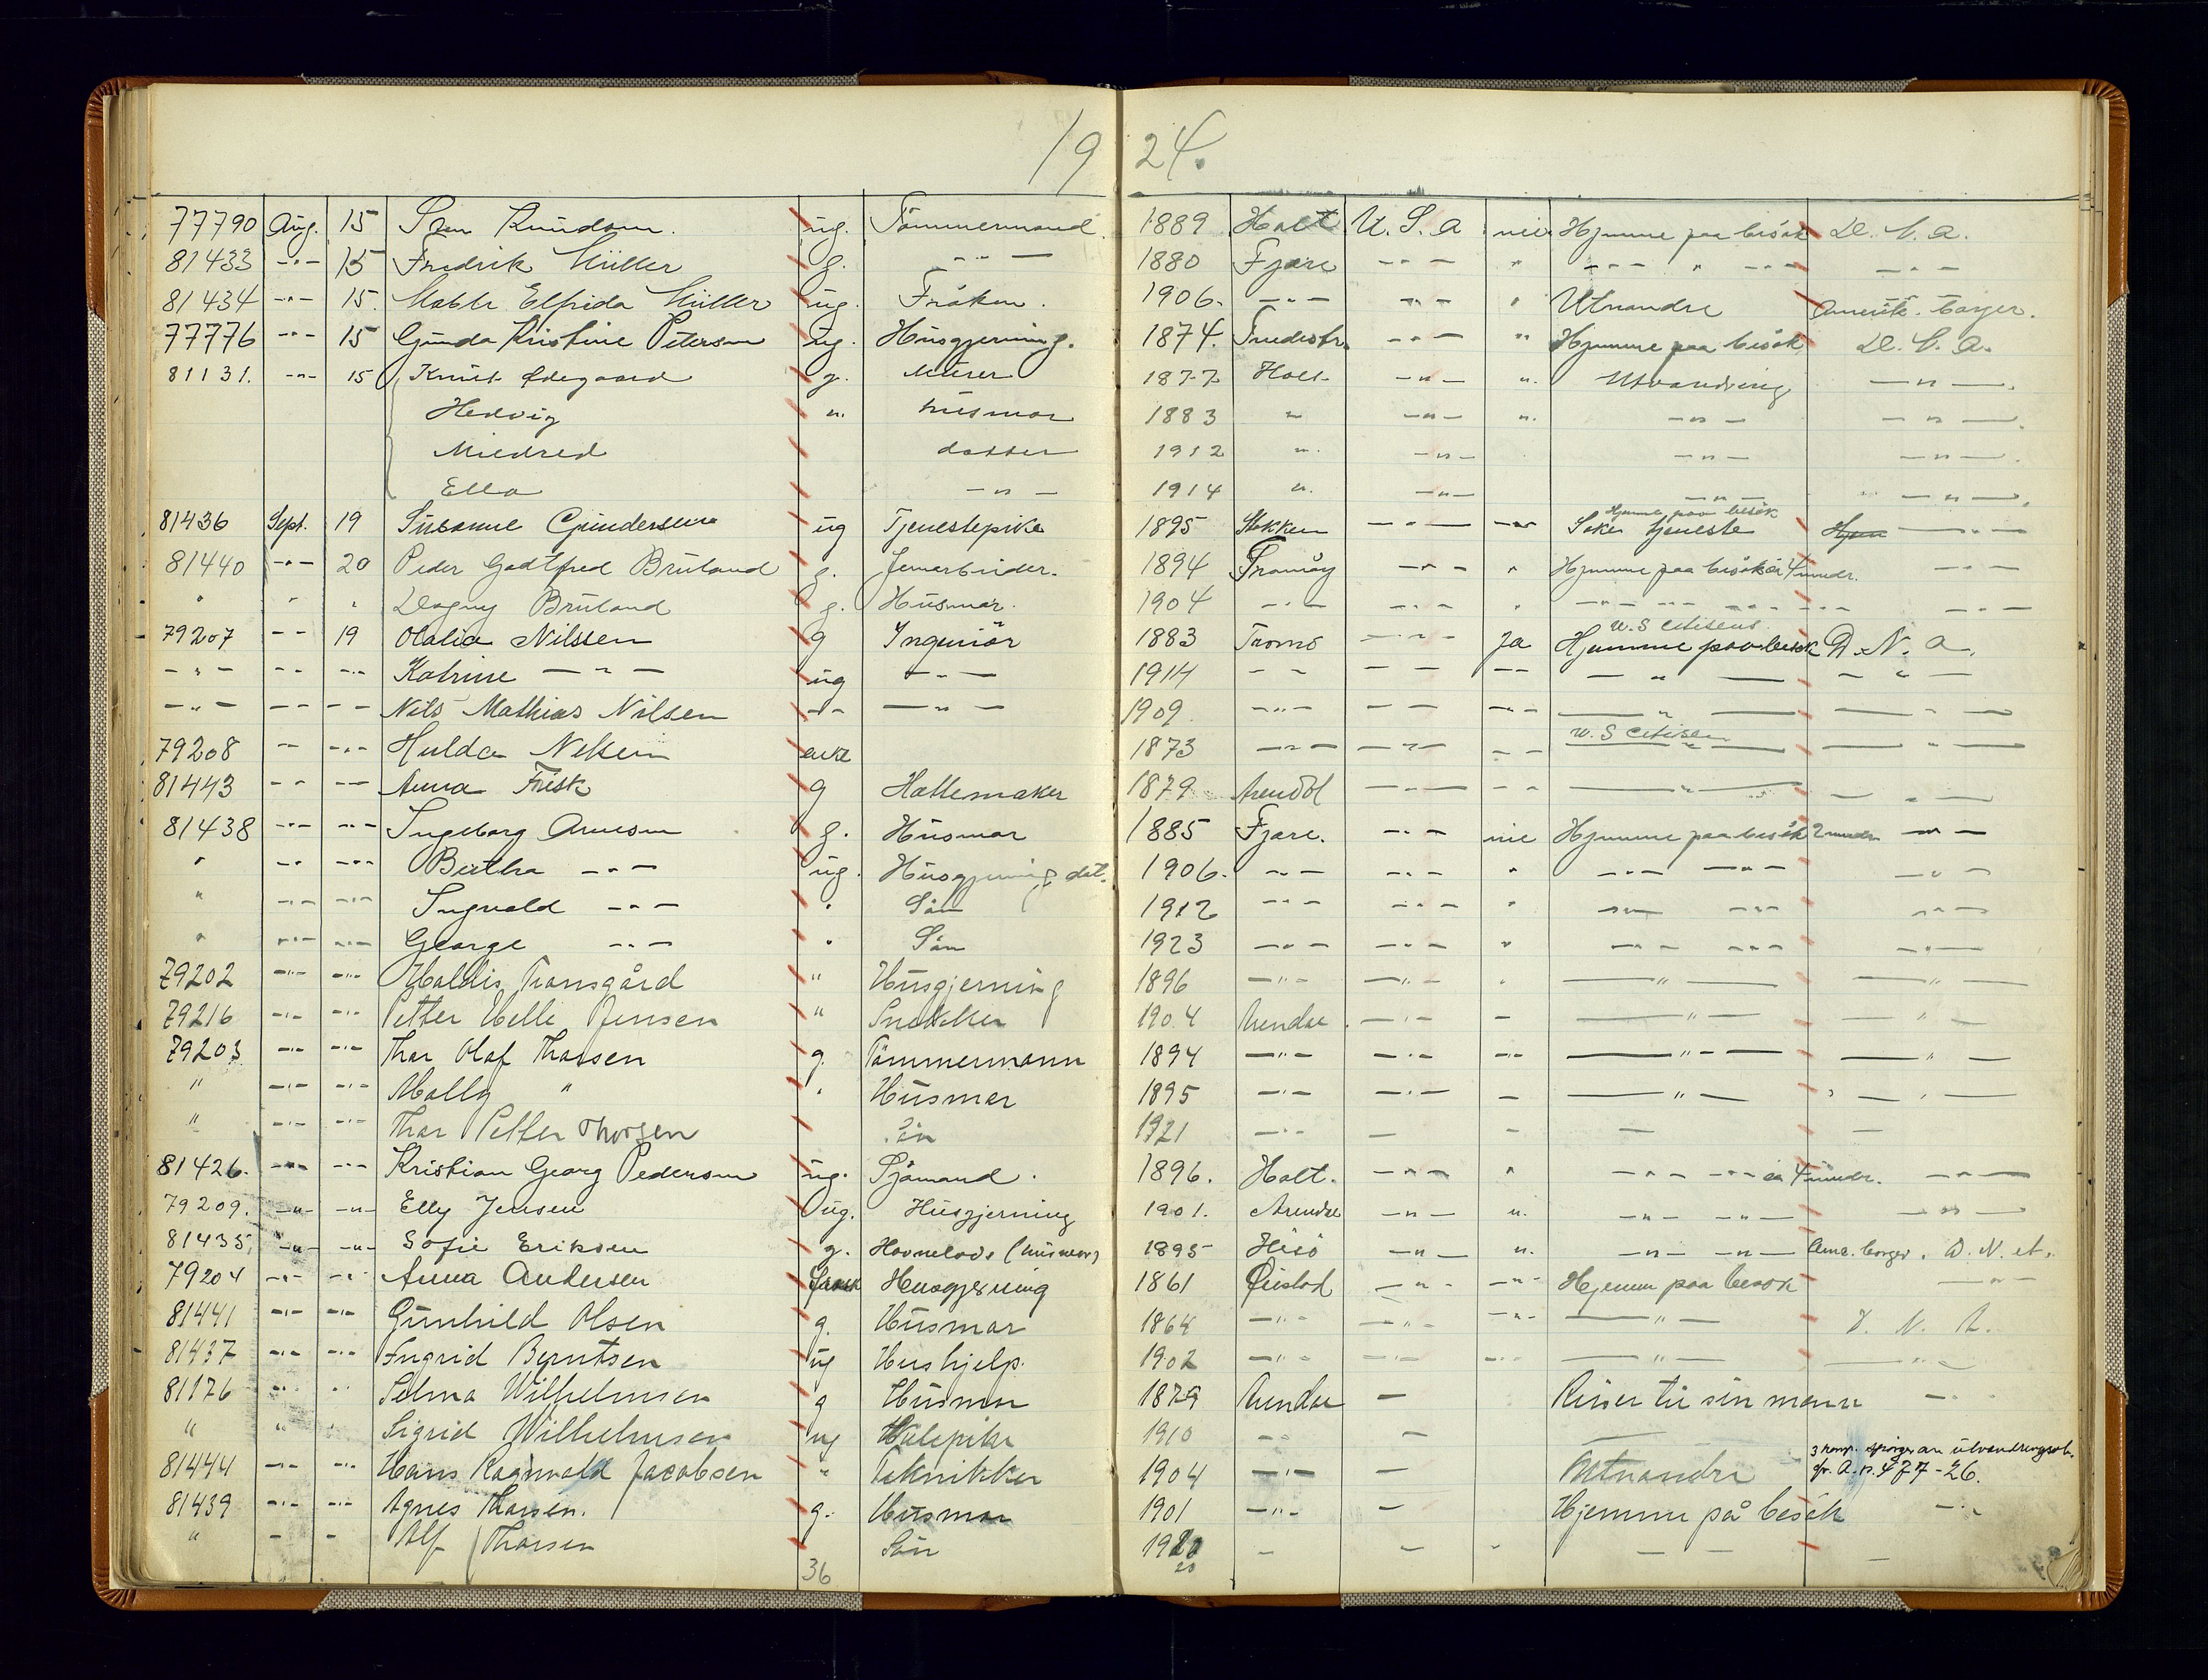 19 24.
77790 Aug. 15 Knudsen. ug. Tömmermand. 1889 Holt U. S. A nei Hjemme paa besök D. N. A.
81433 -"- 15 Fredrik Müller g. -"- 1880 Fjære -"- " -"- " -"- -"-
81434 -"- 15. Mabth Elfrida Müller ug. Fröken. 1906. -"- -"- " Utvandre Amerik. borger.
77776 -"- 15 Gunda Kristine Petersen ug. Husgjerning. 1874. -"- " Hjemme paa besök D. N. A.
81131. -"- 15 Knut Ødegaard g. Murer 1877 Holt -"- ". Utvandring -"-
Hedvig ". husmor 1883 " -"- ". -"- -"-
Mildred datter 1912 ". -"- -"- -"-
Ella -"- 1914 ". -"- -"- -"-
Hjemme paa besök
81436 Sept. 19 Susanne Gundersen ug Tjenestepike 1895 Stokken -"- -"- Söker tjeneste -"-
81440 -"- 20 Peder Godtfred Bruland g. Jernarbeider. 1894 Tromöy -"- " Hjemme paa besök ca 4 mndr. -"-
" " " Dagny Bruland g. Husmor. 1904 -"- -"- " -"- -"- -"- -"-
U.S Citisens
79207 -"- 19 Olalia Nilssen g Ingeniör 1883 Tromö -"- Ja Hjemme paa besök D. N. A.
-"- -"- -"- Katrine -"- ug -"- 1914 -"- -"- -"- -"- -"-
-"- -- -- Nils Mathias Nilsen -"- -"- 1909 -"- -- -"- -"- -"-
U.S Citisen
79208 -"- -"- Hulda Nilsen enke 1873 -"- -"- -- -"- -"-
81443 -"- -- Anna Frisk g Hattemaker 1879 Arendal -"- -- -"- -"-
81438 -"- -"- Ingeborg Arnesen g. Husmor 1885 Fjære. -"- nei Hjemme paa besök 2 mndr. -"-
" -"- -"- Bertha -"- ug. Husgjerning, dat. 1906. -"- -"- " -"- -"- -"-
" -"- -"- Ingvald -"- " Sön 1912 -"- -"- " -"- -"- -"-
" -"- -"- George -"- " Sön 1923 -"- -"- " -"- -"- -"-
79202 -"- -"- Haldis Transgård " Husgjerning 1896 -"- -"- " -"- -"-
79216 -"- -"- Petter Helle Jensen " Snekker 1904 Arendal -"- - -"- -"-
79203 -"- -"- Thor Olaf Thorsen g. Tömmermann 1894 -"- -"- -"- -"- -"-
" -"- -"- Molly " " Husmor 1895 -"- -"- - -"- -"-
" -"- -"- Thor Petter Thorsen Sön 1921 -"- - - - -
81426. -"- -"- Kristian Georg Pedersen ug. Sjömand. 1896. Holt. -"- " -"- -"- ca 4 mndr. -"-
79209. -"- -"- Elly Jensen ug. Husgjerning 1901. Arendal -"- ". -"- -"- -"-
81435. -"- -"- Sofie Eriksen g. (husmor) 1895 Hisö -"- ". -"- -"- Ama. borger. D. N. A.
79204 -"- -"- Anna Andersen Husgjerning 1861 Öiestad -"- -"- Hjemme paa besök -"-
81441 -"- -"- Gunhild Olsen g. Husmor 1864 -"- -"- -"- -"- D. N. A.
81437 -"- -"- Ingrid Berntsen ug Hushjelp. 1902 -"- -"- -"- -"- -"-
81176 -"- " Selma Wilhelmsen g Husmor 1879 Arendal - Reiser til sin mann -"-
" " " Sigrid Wilhelmsen ug 1910 -- -
81444 -"- -"- Hans Ragnvald Jacobsen " Teknikker 1904 -"- - Utvandre utvandringsob. A. n. 477-26.
81439 -"- -"- Agnes Thorsen. g. Husmor 1901 -"- - Hjemme på besök -"-
" - - Alf Thorsen Sön 1920 - - " - - -
20
36